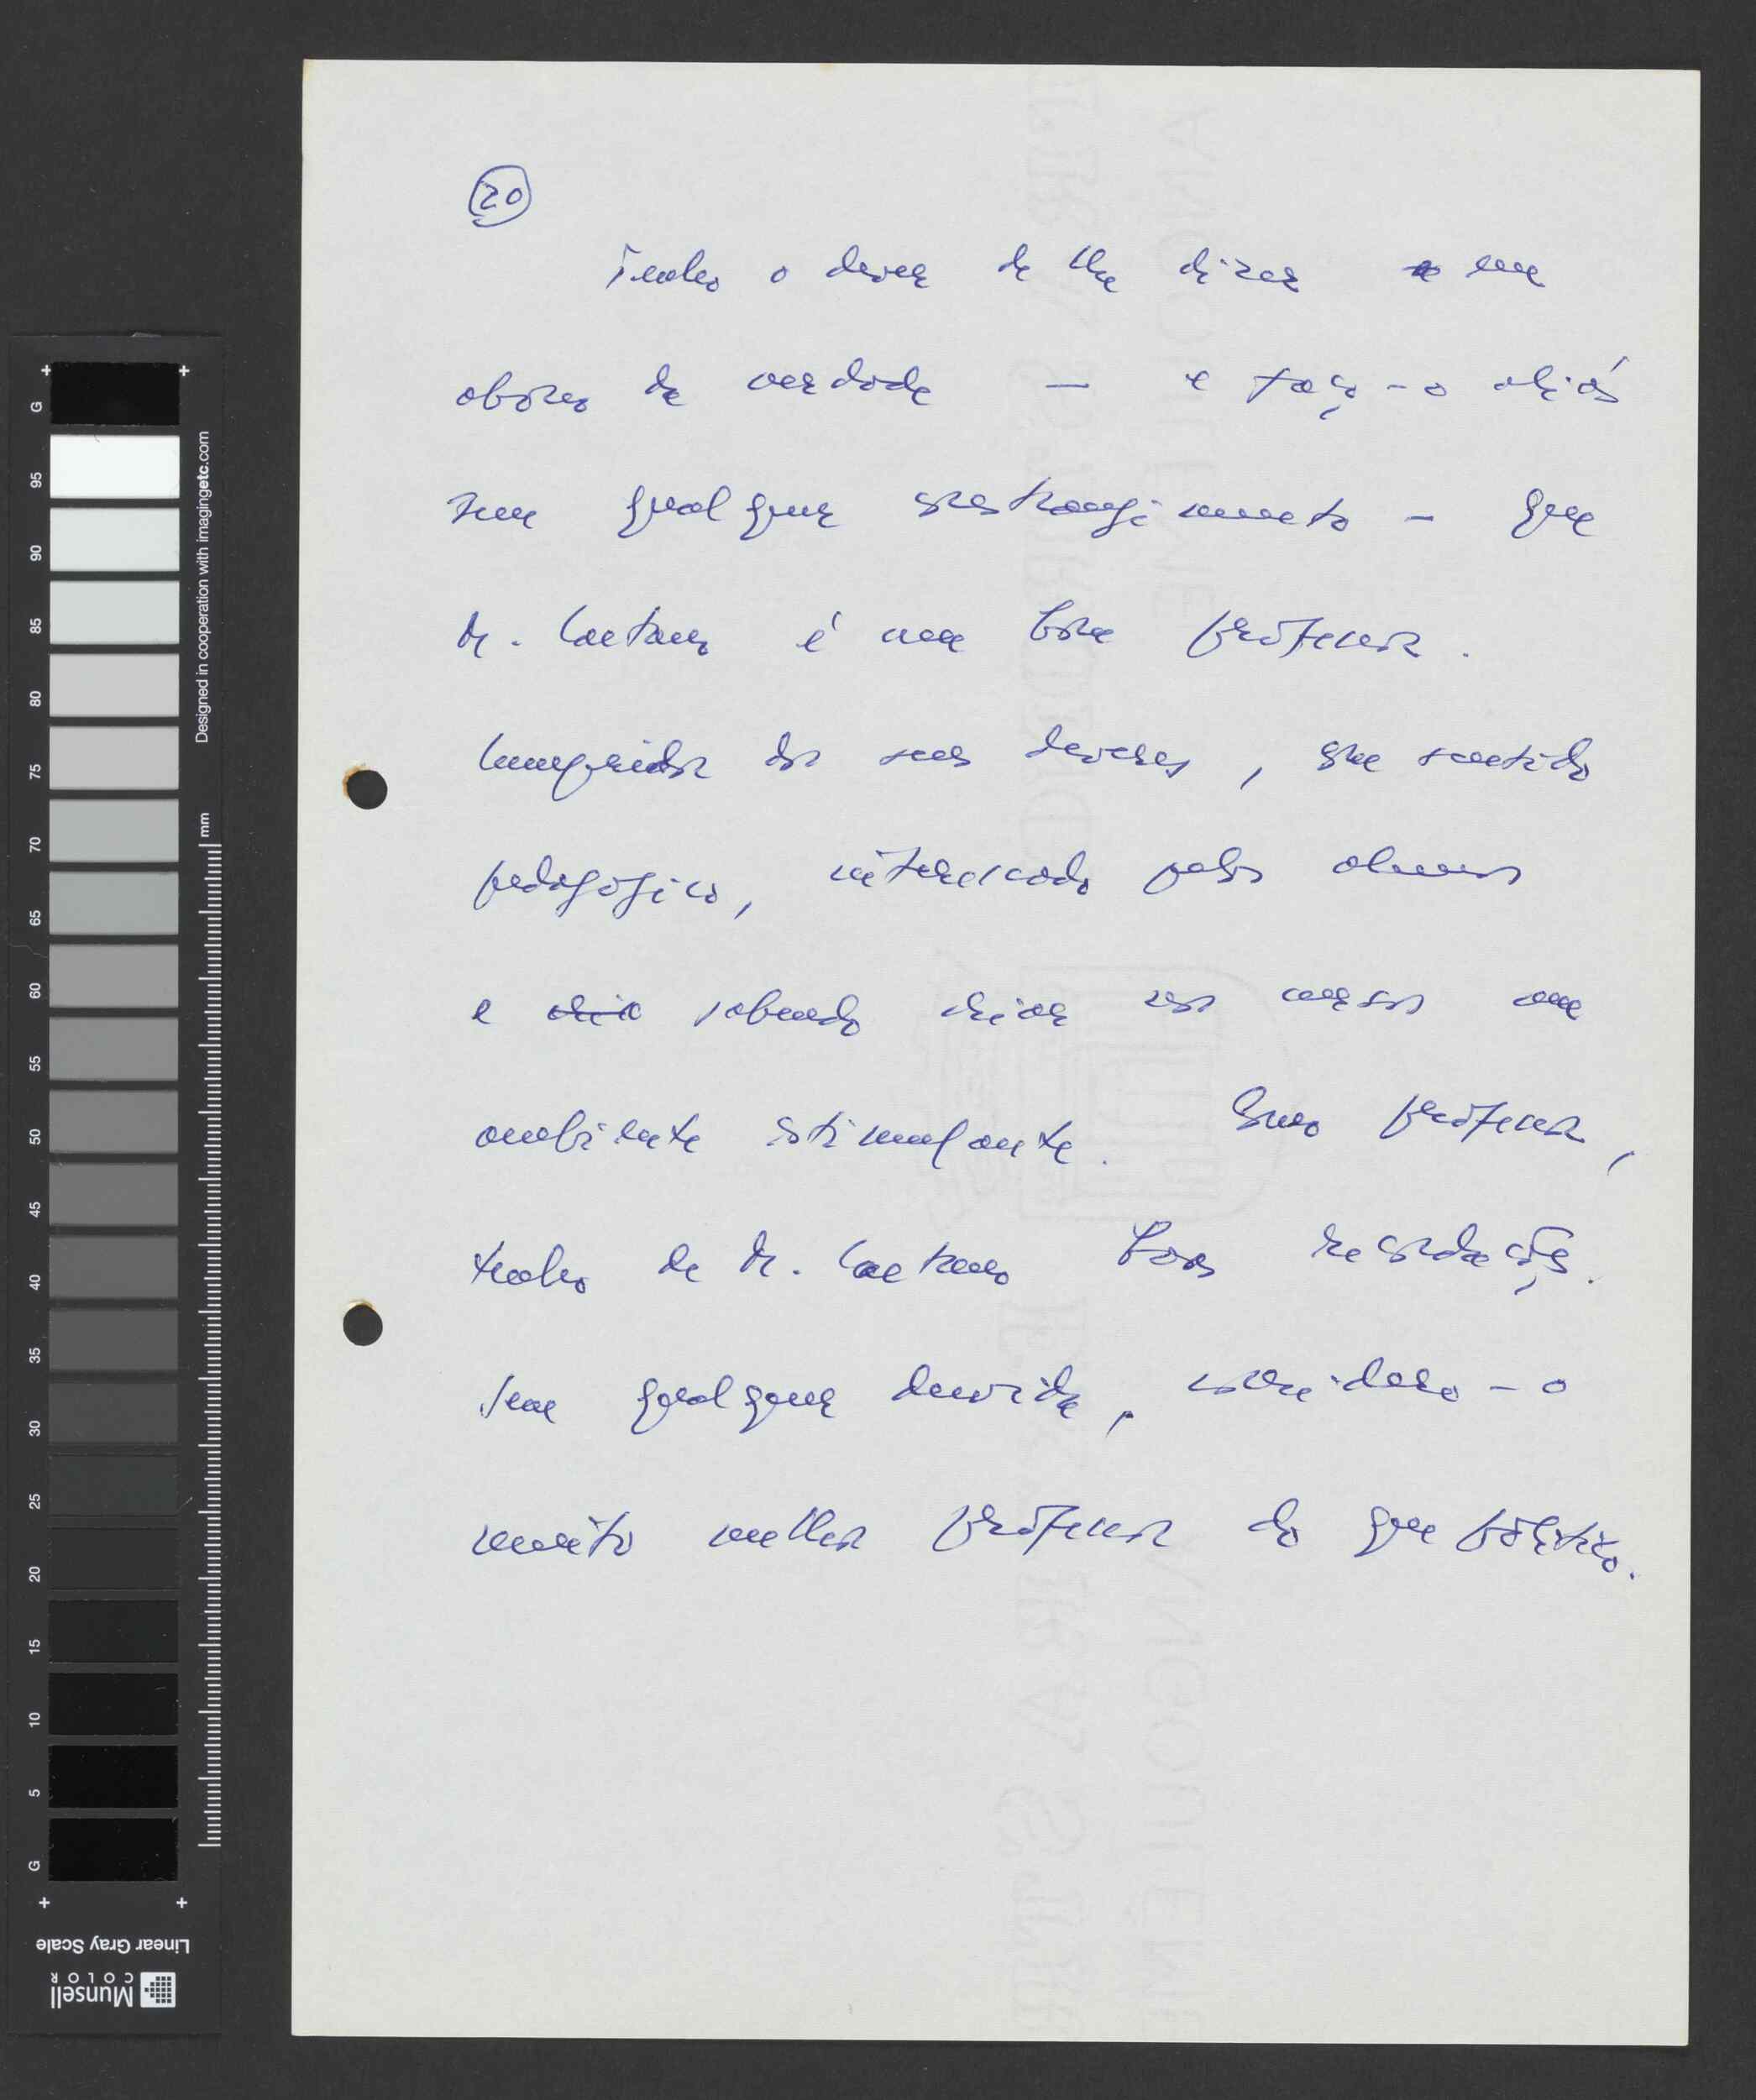 20
Tenho o dever de lhe dizer em
abono da verdade — e faço-o aliás
sem qualquer constrangimento — que
M. Caetano é um bom professor.
Cumpridor dos seus deveres, com sentido
pedagógico, interessado pelos alunos
e cria sabendo criar nos cursos um
ambiente estimulante. Como professor,
tenho de M. Caetano boas recordações.
Sem qualquer dúvida, considero-o
muito melhor professor do que político.
G 95 90 85 80 75 70 65 60 55 50 45 40 35 30 25 20 15 10 5 G
Designed in cooperation with imagingetc.com
mm
Linear Gray Scale
Munsell
COLOR